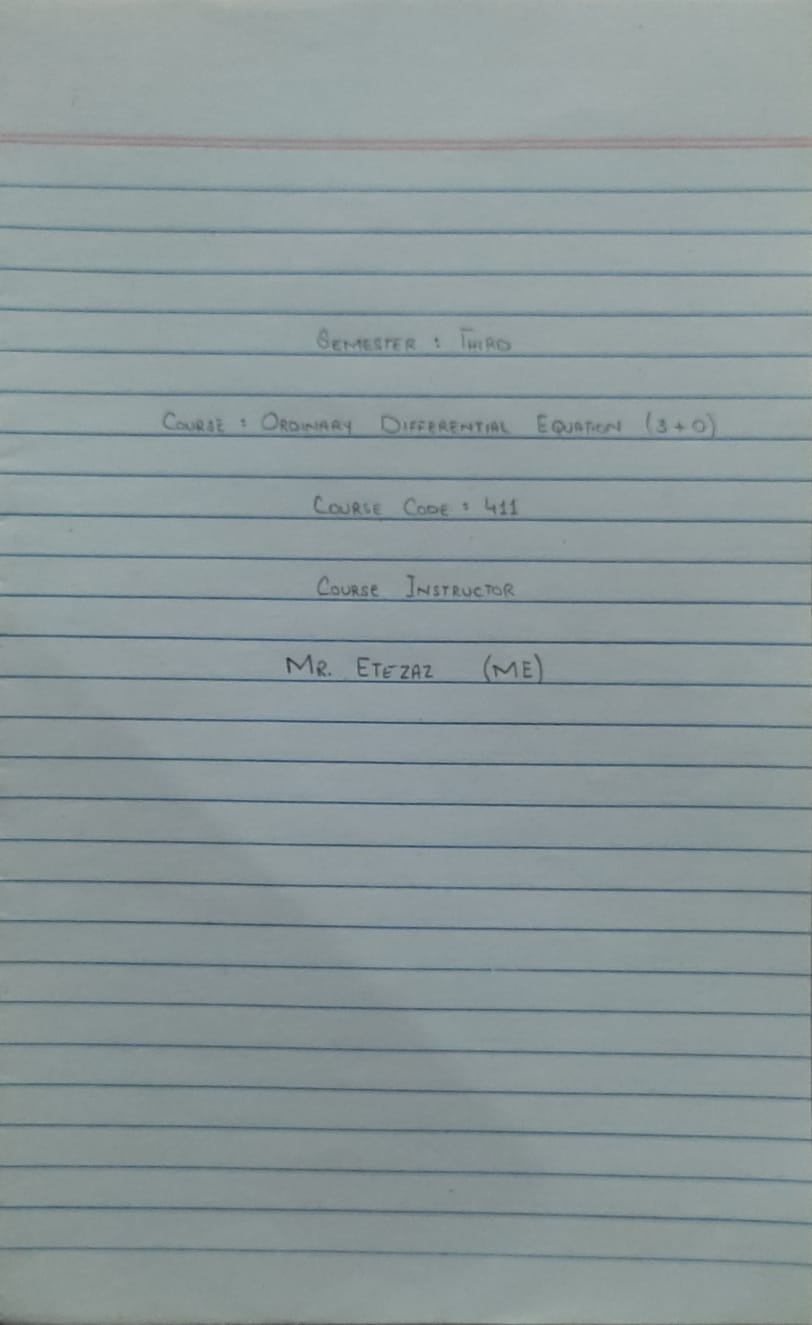 SEMESTER : THIRD
COURSE : ORDINARY DIFFERENTIAL EQUATION (3+0)
COURSE CODE : 411
COURSE INSTRUCTOR
MR. ETEZAZ (ME)